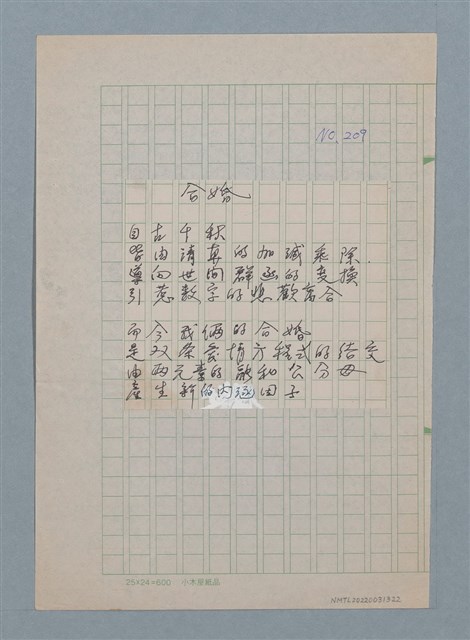 NO. 209
合婚
自古千秋
皆由清真的加減乘除.
導向世間群函的變換
引惹數字的悲歡离合
而今我倆的合婚
是双条爱情方程式的结交
由两元素的融和公分母
產生新的内涵因子
25×24=600 小木屋紙品
NMTL20220031322